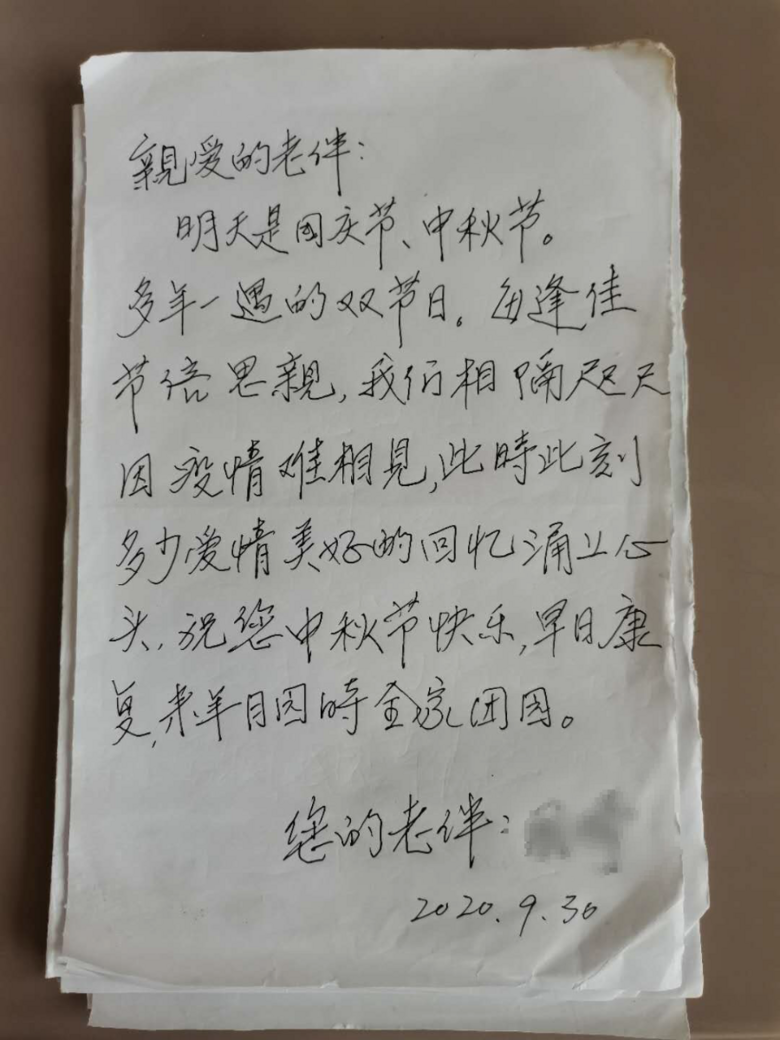 親爱的老伴：
明天是国庆节、中秋节。
多年一遇的双节日。每逢佳
节倍思親，我们相隔咫尺
因疫情难相見，此時此刻
多少爱情美好的回忆涌上心
头，祝您中秋节快乐，早日康
复，来年月圆時全家团圆。
您的老伴：
2020.9.30